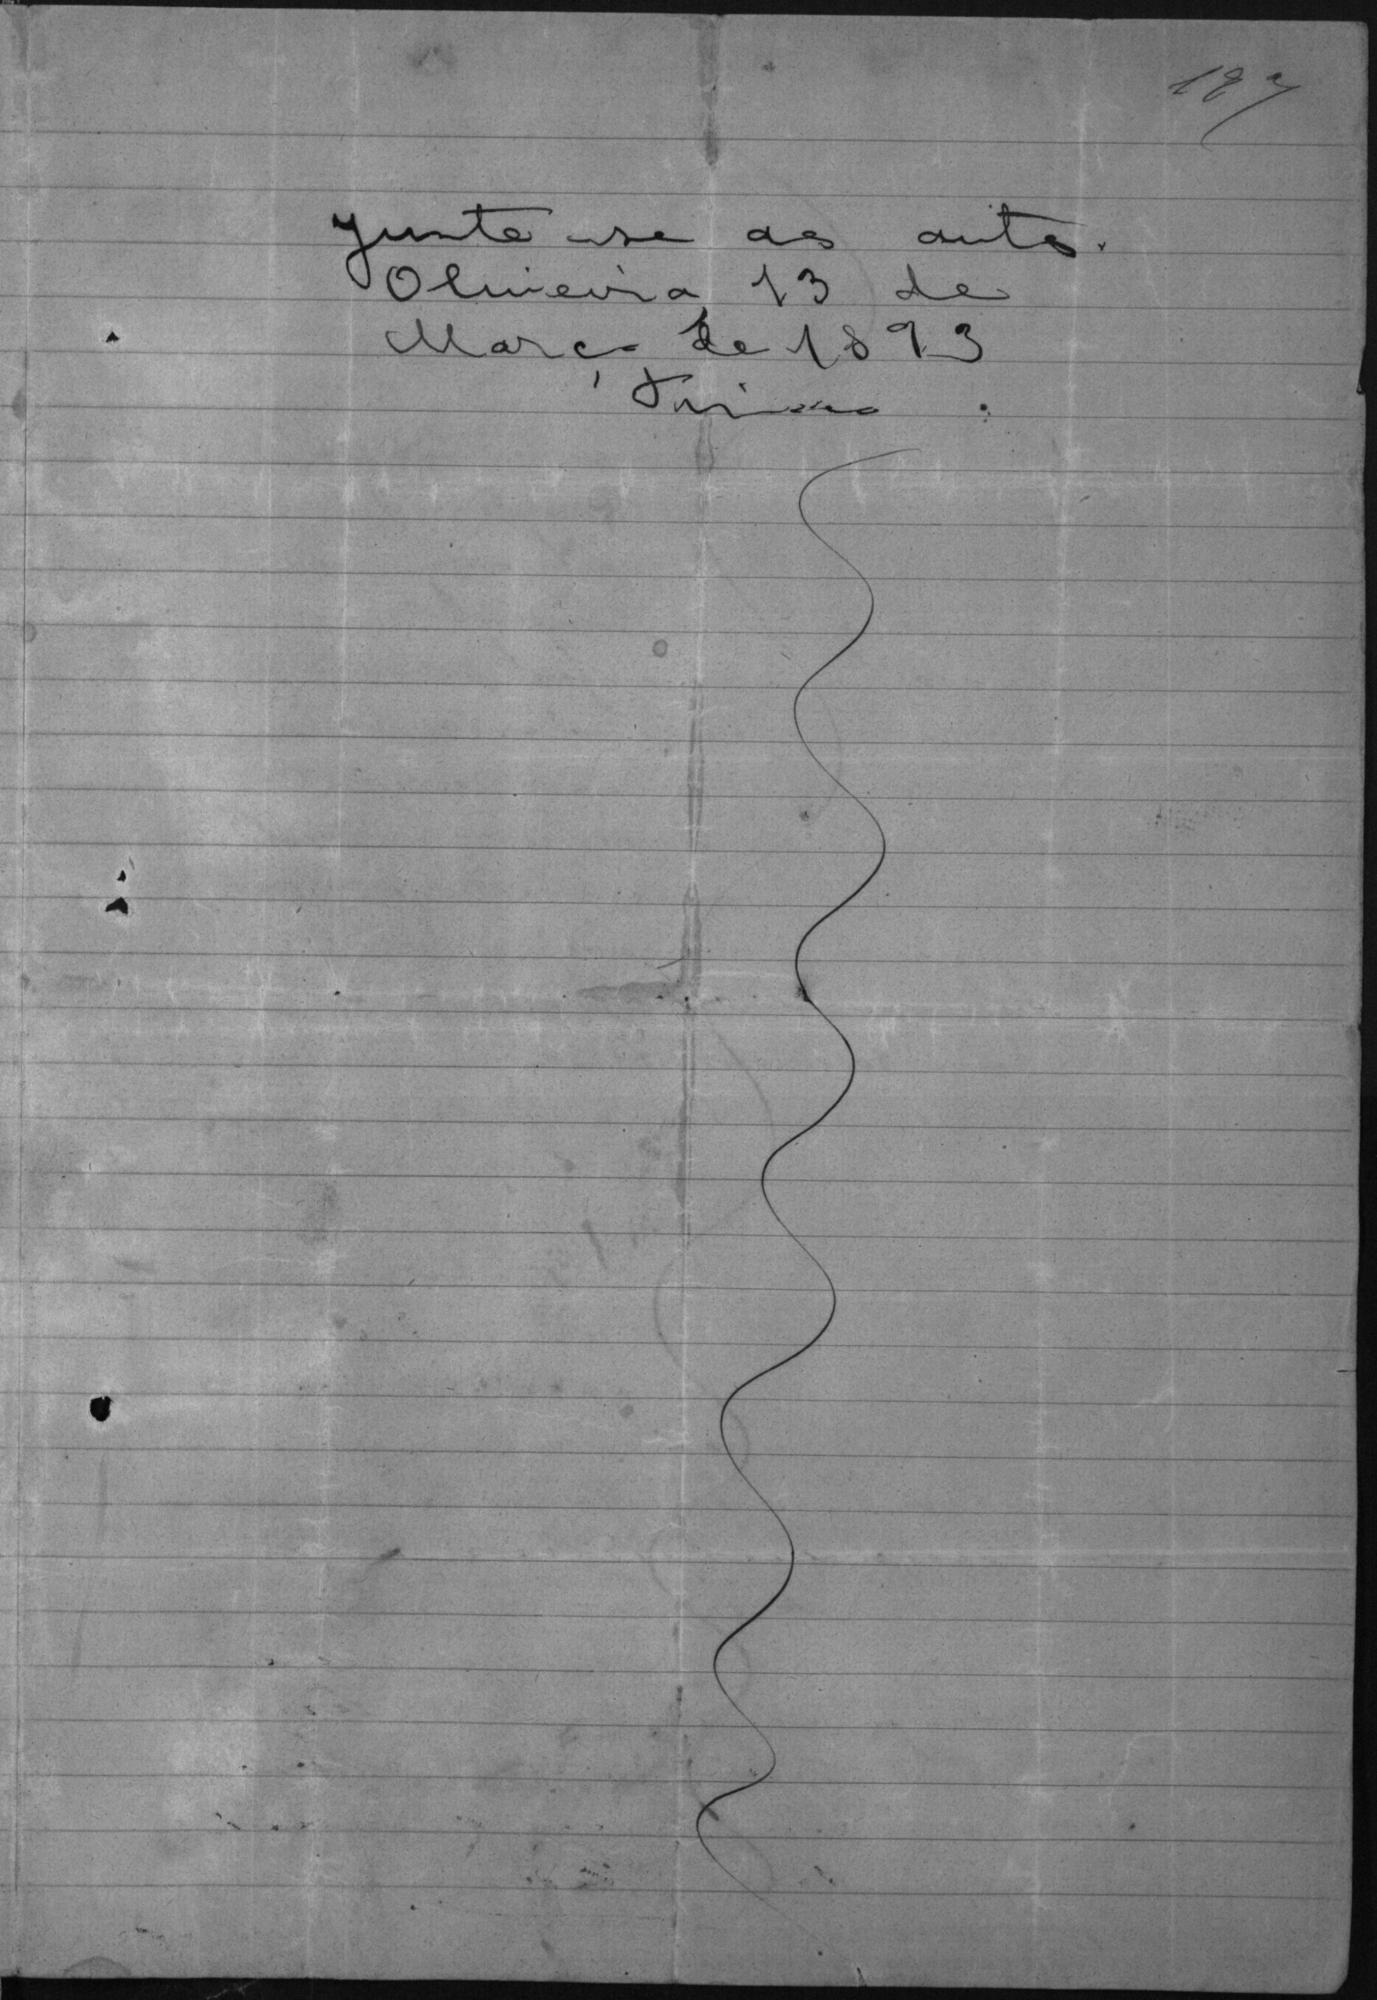 187
Junte-se aos autos.
Oliveira, 13 de
Março de 1893